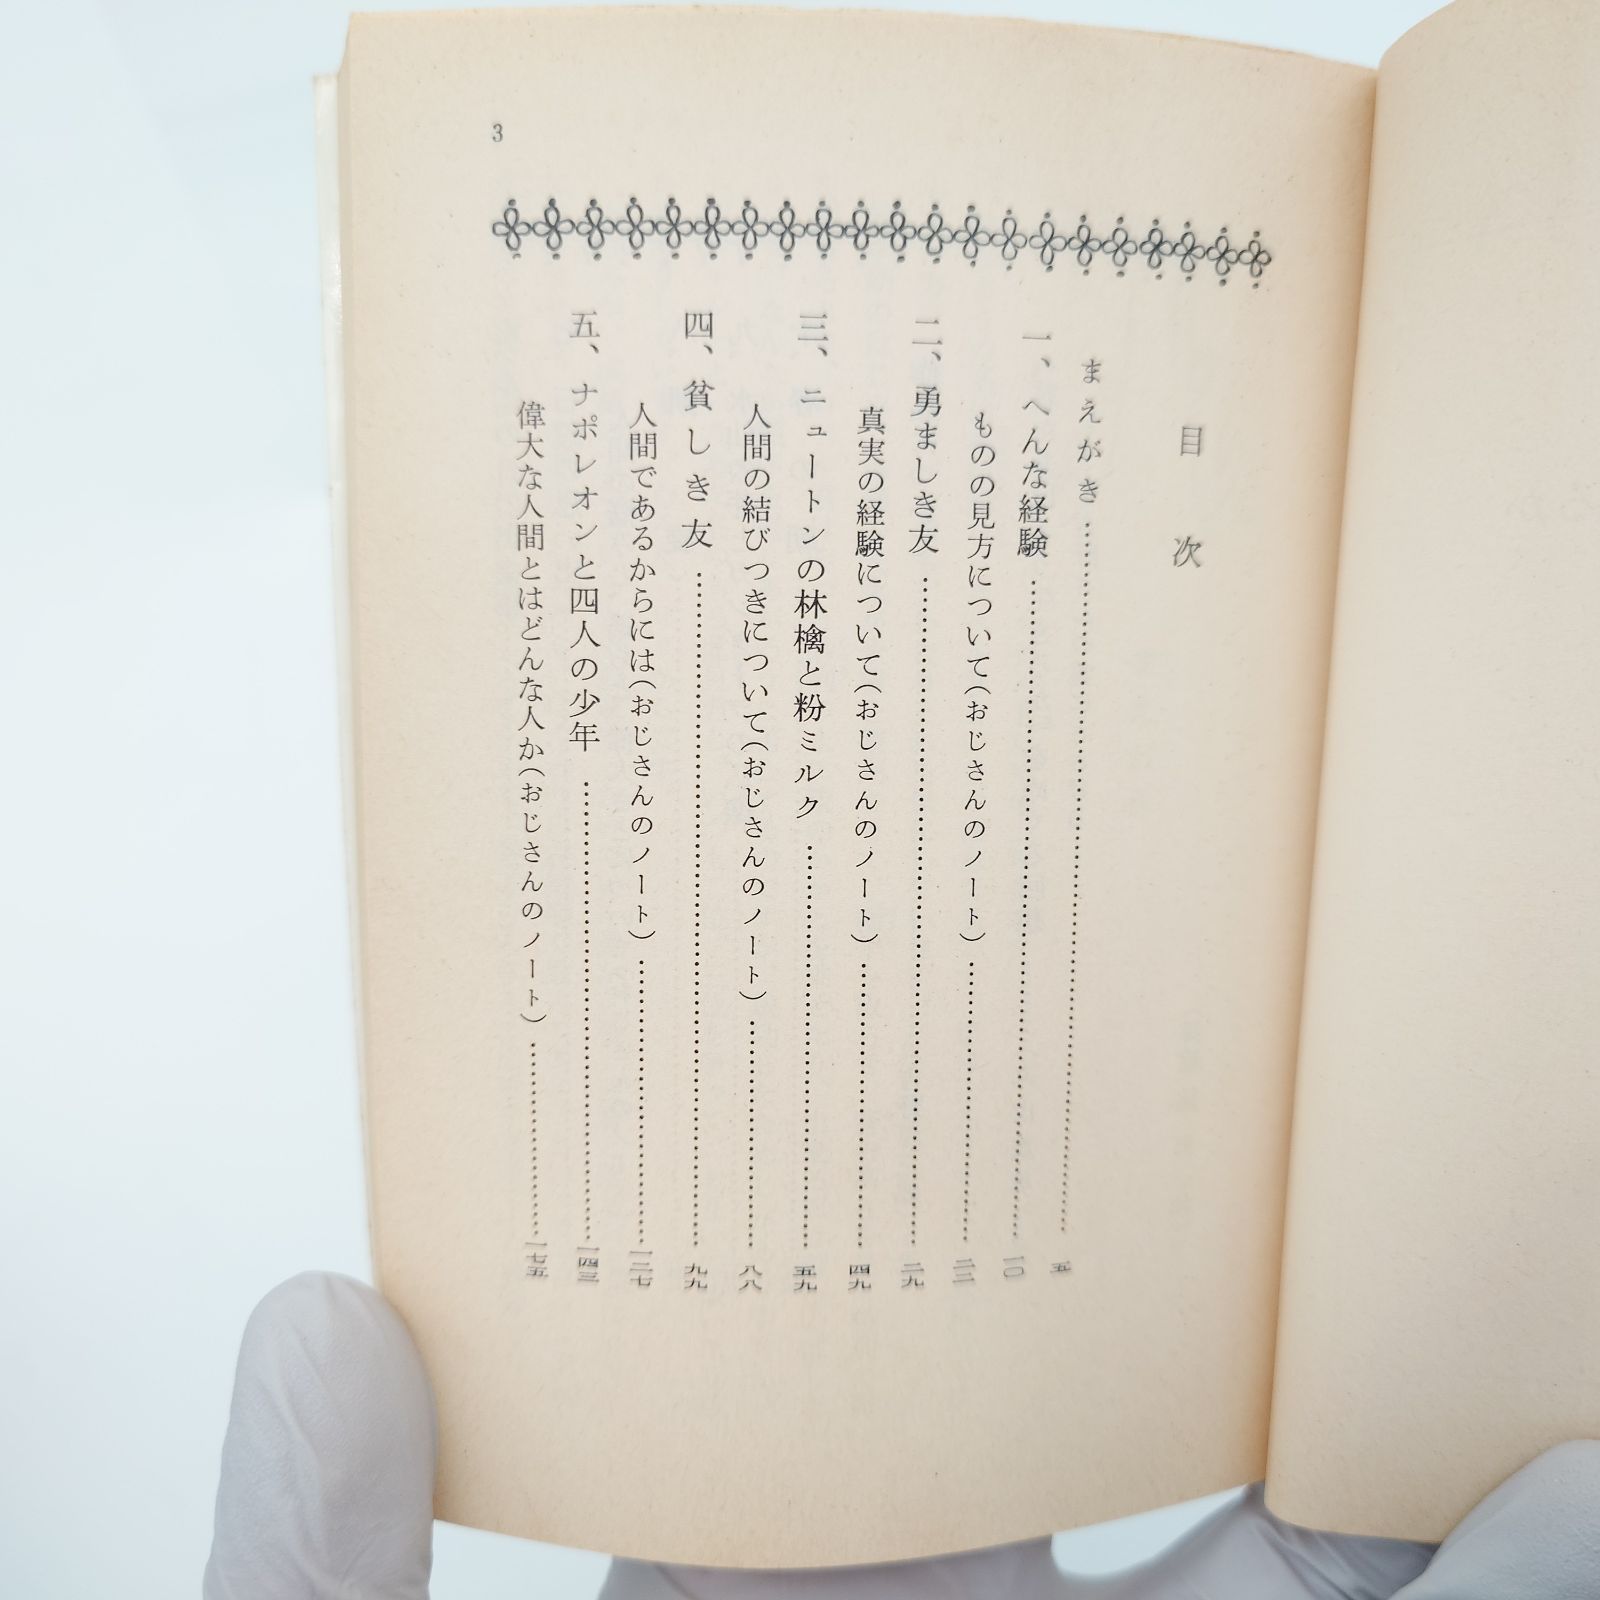 3
目次
まえがき……五
一、へんな経験……一〇
ものの見方について(おじさんのノート)……二二
二、勇ましき友……二九
真実の経験について(おじさんのノート)……四九
三、ニュートンの林檎と粉ミルク……五九
人間の結びつきについて(おじさんのノート)……八八
四、貧しき友……九九
人間であるからには(おじさんのノート)……一二七
五、ナポレオンと四人の少年……一四三
偉大な人間とはどんな人か(おじさんのノート)……一七五